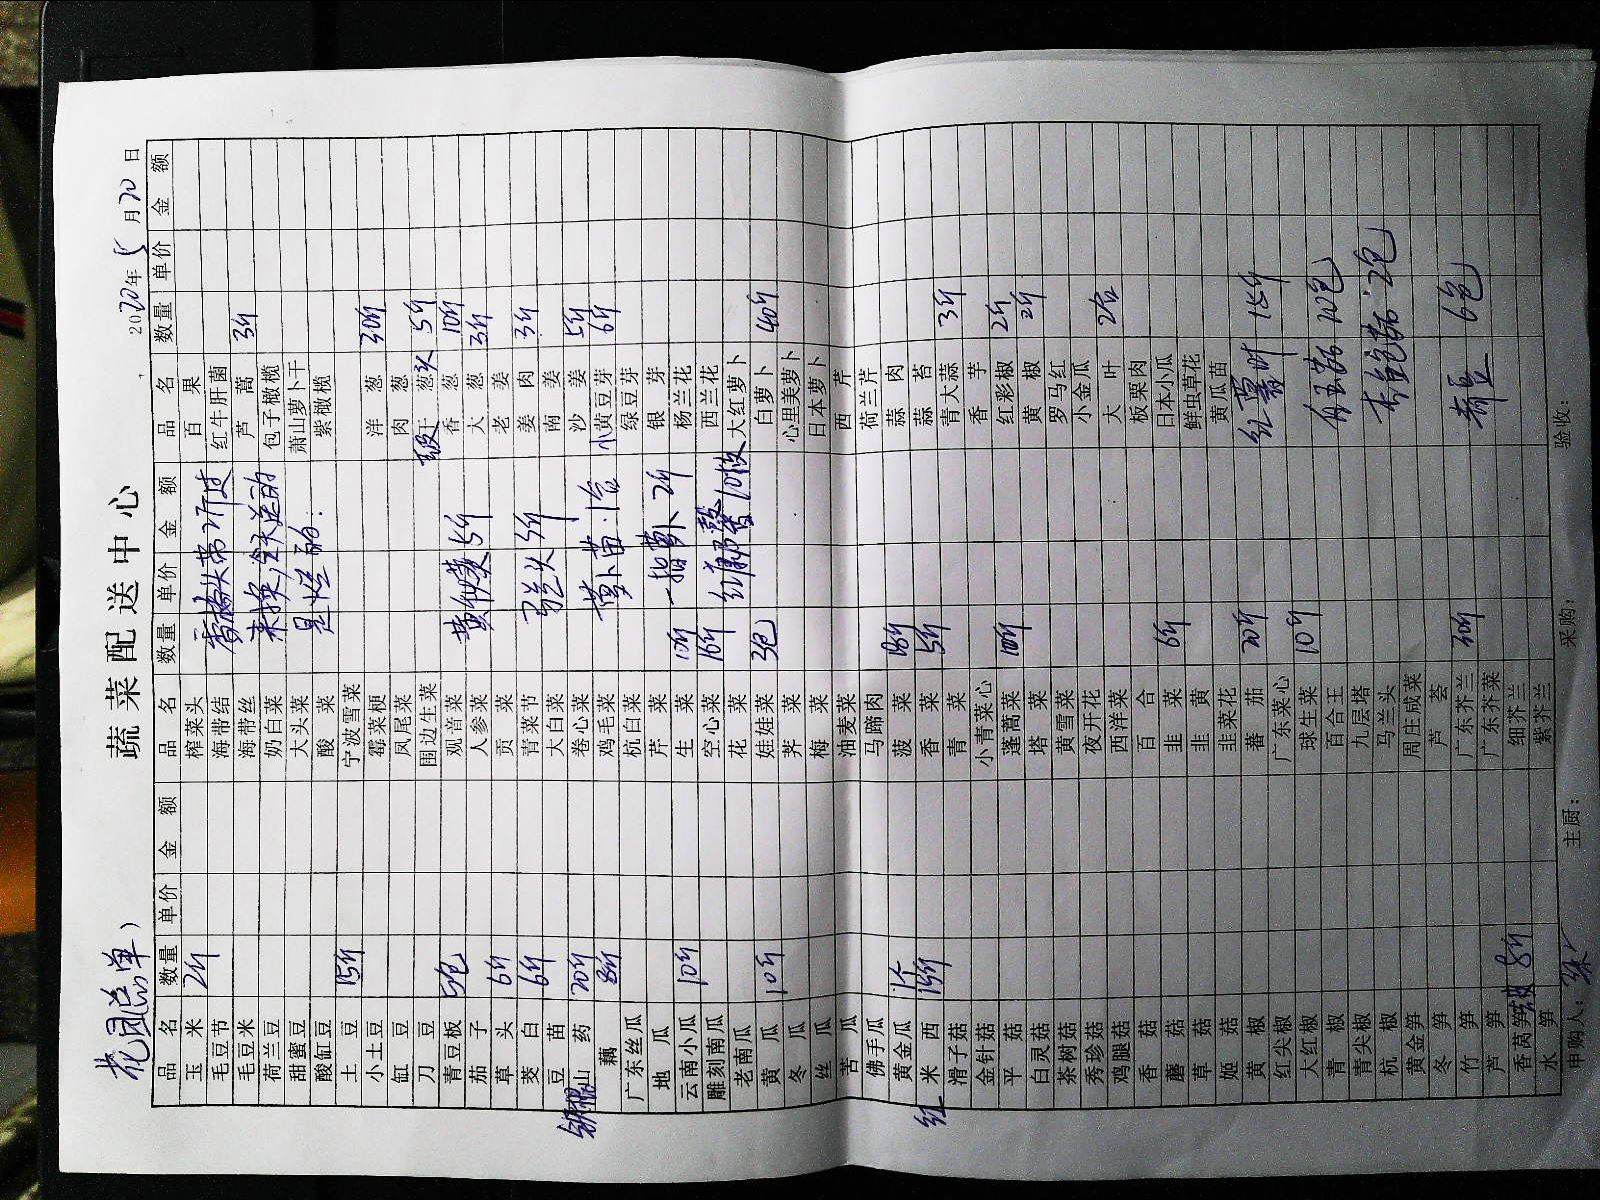 花园总单)
蔬菜配送中心
2020年5月20日
品名 数量 单价 金额 品名 数量 单价 金额 品名 数量 单价 金额
玉米 2斤 榨菜头 百果
毛豆节 海带结 红牛肝菌
毛豆米 海带丝 芦蒿 3斤
荷兰豆 奶白菜 包子橄榄
甜蜜豆 大头菜 萧山萝卜干
酸缸豆 酸菜 紫橄榄
土豆 15斤 宁波雪菜
小土豆 霉菜梗 洋葱 30斤
缸豆 凤尾菜 肉葱
刀豆 围边生菜 干葱头 5斤
青豆板 5包 观音菜 香葱 10斤
茄子 人参菜 大葱 3斤
草头 6斤 贡菜 老姜
茭白 6斤 青菜节 姜肉 3斤
豆苗 大白菜 南姜
铁棍山药 20斤 卷心菜 沙姜 5斤
藕 8斤 鸡毛菜 小黄豆芽 6斤
广东丝瓜 杭白菜 绿豆芽
地瓜 芹菜 银芽
云南小瓜 10斤 生菜 10斤 杨兰花
雕刻南瓜 空心菜 15斤 西兰花
老南瓜 花菜 大红萝卜
黄瓜 10斤 娃娃菜 3包 白萝卜 40斤
冬瓜 荠菜 心里美萝卜
丝瓜 梅菜 日本萝卜
苦瓜 油麦菜 西芹
佛手瓜 马蹄肉 荷兰芹
黄金瓜 1个 菠菜 18斤 蒜肉
红米西 15斤 香菜 5斤 蒜苔
滑子菇 青菜 青大蒜 3斤
金针菇 小青菜心 香芋
平菇 蓬蒿菜 10斤 红彩椒 2斤
白灵菇 塔菜 黄椒 2斤
茶树菇 黄雪菜 罗马红
秀珍菇 夜开花 小金瓜
鸡腿菇 西洋菜 大叶 2台
香菇 百合 板栗肉
蘑菇 韭菜 6斤 日本小瓜
草菇 韭黄 鲜虫草花
姬菇 韭菜花 黄瓜苗
黄椒 番茄 20斤
红尖椒 广东菜心
大红椒 球生菜 10斤
青椒 百合王
青尖椒 九层塔
杭椒 马兰头
黄金笋 周庄咸菜
冬笋 芦荟
竹笋 广东芥兰 20斤
芦笋 广东芥菜 青豆 6包
香莴笋 8斤 细芥兰
水笋 紫芥兰
来换,今天送的
是烂的
5斤
5斤
萝卜苗:1台
一指萝卜 2斤
10枚
10包
2包
申购人: 主厨: 采购: 验收: